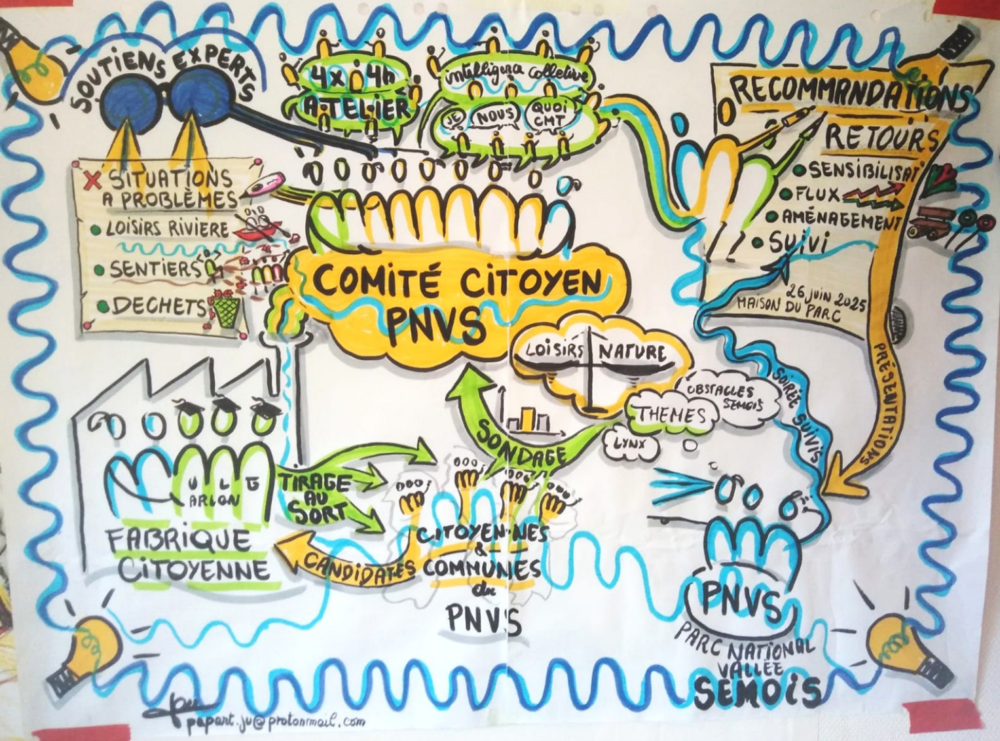 SOUTIENS EXPERTS
4x 4h
ATELIER
intelligence collective
JE
NOUS
QUOI
CMT
RECOMMANDATIONS
RETOURS
SENSIBILISAT
FLUX
AMÉNAGEMENT
SUIVI
26 juin 2025
MAISON DU PARC
X SITUATIONS
A PROBLÈMES
LOISIRS RIVIERE
SENTIERS
DECHETS
COMITÉ CITOYEN
PNVS
LOISIRS NATURE
OBSTACLES
SEMOIS
THEMES
LYNX
SONDAGE
SOIRÉE SUIVIS
PRÉSENTATIONS
ULG
ARLON
FABRIQUE
CITOYENNE
TIRAGE
AU
SORT
CANDIDATES
CITOYEN·NES
&
COMMUNES
du
PNVS
PNVS
PARC NATIONAL
VALLÉE
SEMOIS
papart.ju@protonmail.com